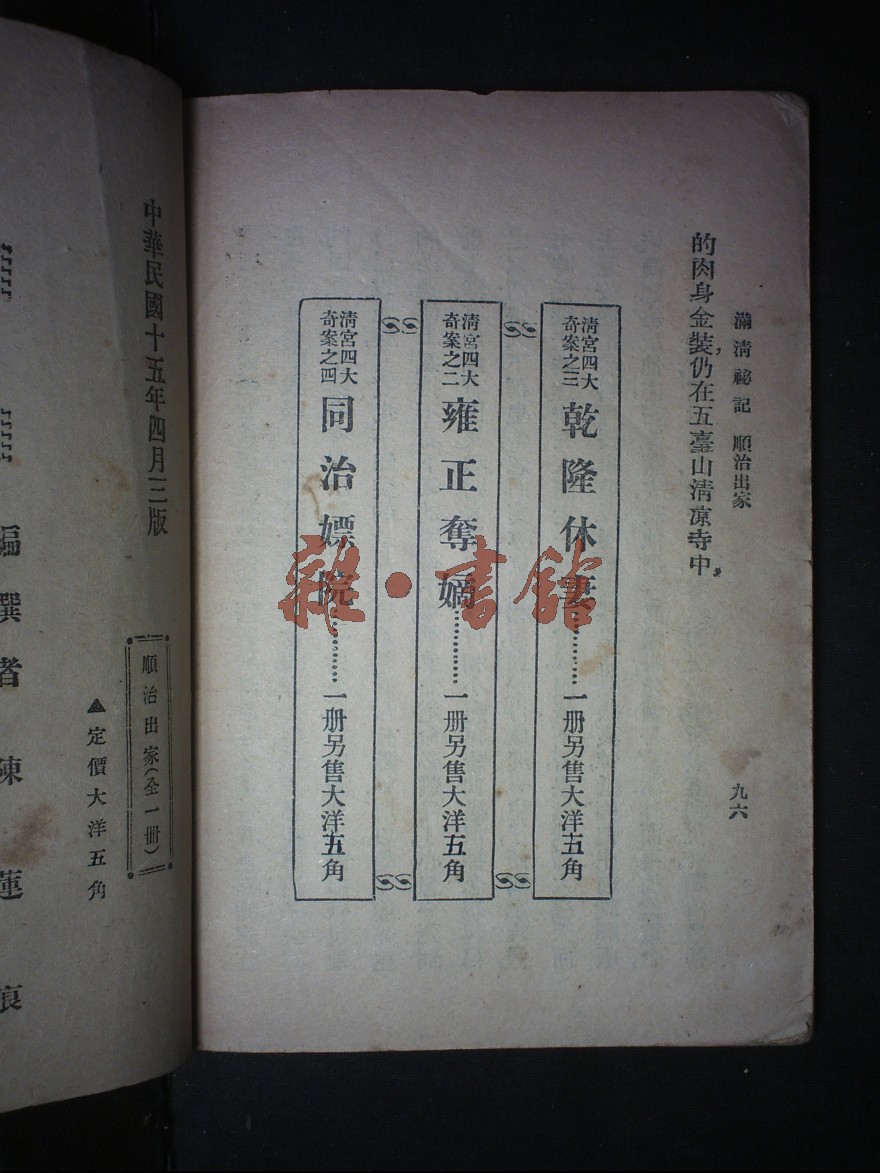 滿清祕記 順治出家
九六
的肉身金裝,仍在五臺山清涼寺中,
清宮四大
奇案之三
乾隆休妻…………一册另售大洋五角
清宮四大
奇案之二
雍正奪嫡…………一册另售大洋五角
清宮四大
奇案之四
同治嫖院…………一册另售大洋五角
雜·書館
中華民國十五年四月三版
順治出家(全一冊)
▲定價大洋五角
編撰者 陳蓮痕